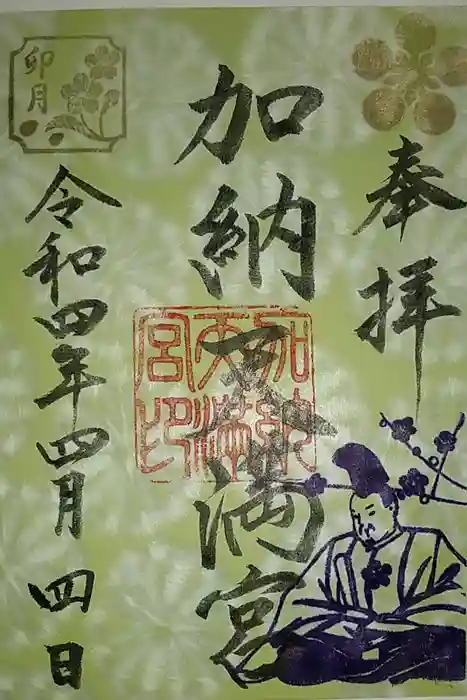 奉拝
加納天満宮
加納天満宮印
令和四年四月四日
卯月